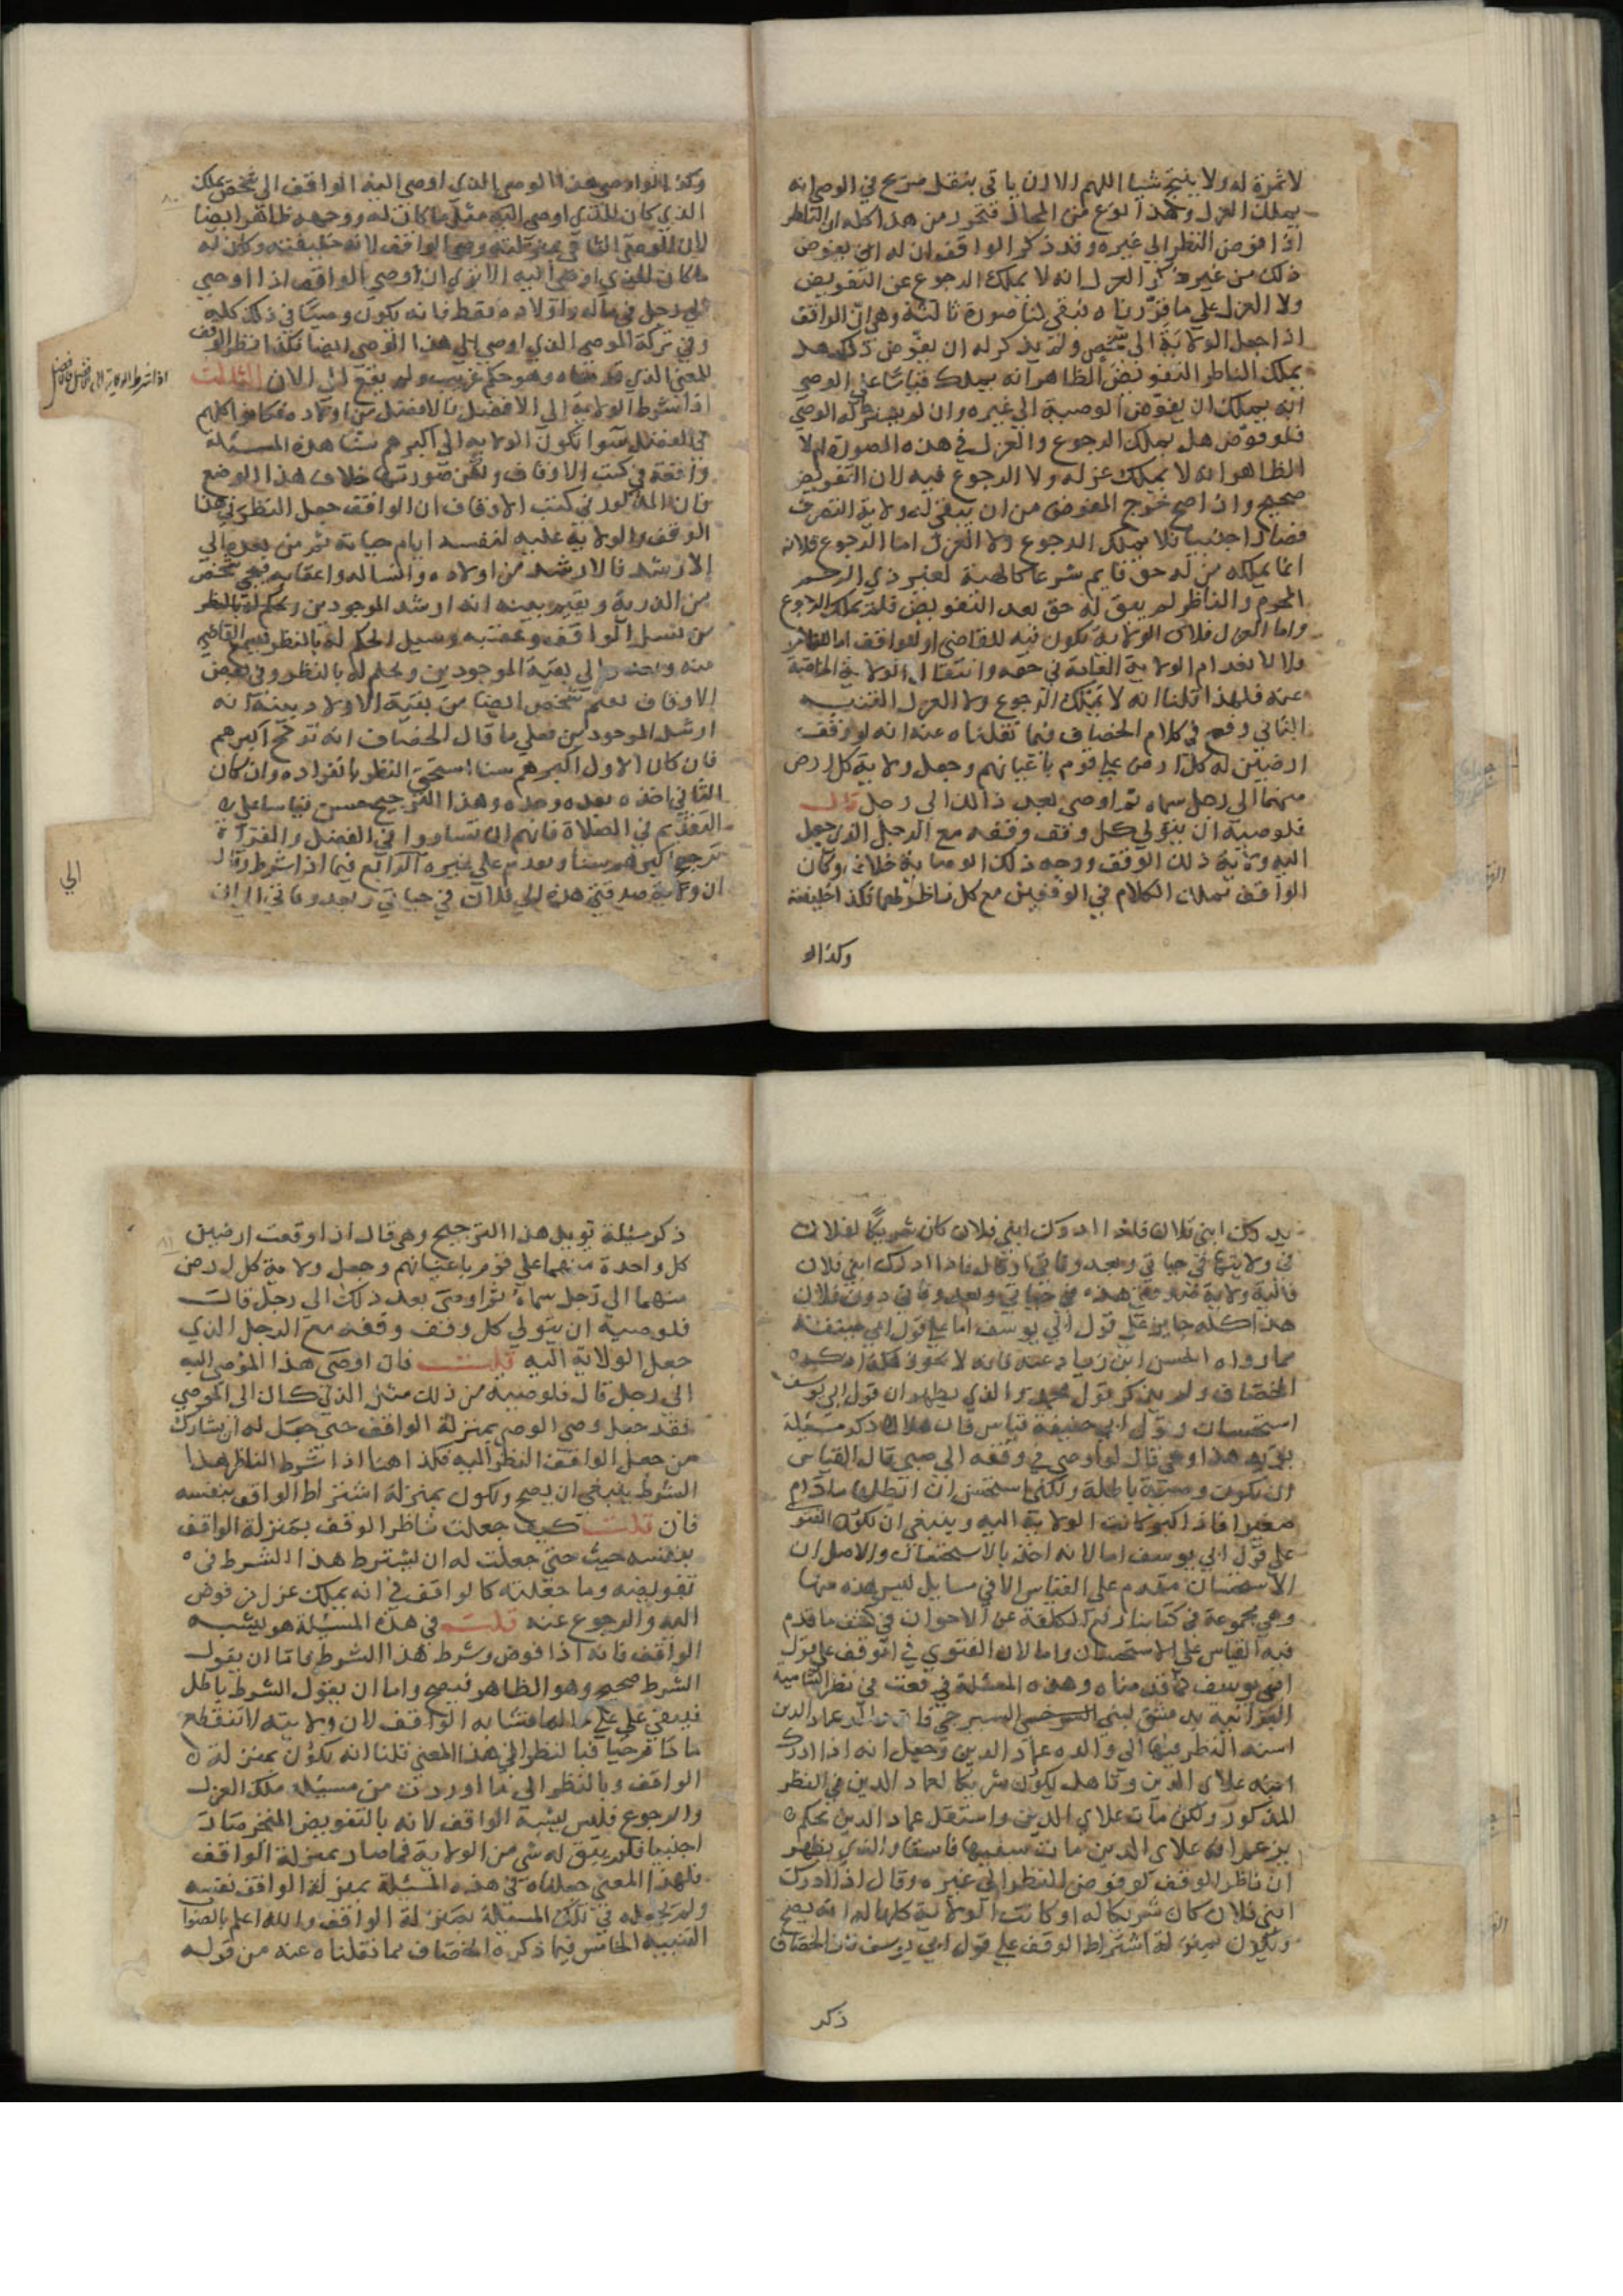 لا ثمرة له ولا ينتج شيا اللهم الا ان ياتي بنقل صريح في الوصي انه
يملك العزل وهذا نوع من المحال فتحرر من هذا كله ان الناظر
اذا فوض النظر الي غيره وقد ذكر الواقف ان له ان يفوض
ذلك من غير ذكر العزل انه لا يملك الرجوع عن التفويض
ولا العزل علي ما قررناه فبقي لنا صورة ثالثة وهي ان الواقف
اذا جعل الولاية الي شخص ولم يذكر له ان يفوض ذلك هل
يملك الناظر التفويض الظاهر انه يملك قياسا علي الوصي
انه يملك ان يفوض الوصية الي غيره وان لم يشترط له الوصي
فلو فوض هل يملك الرجوع والعزل في هذه الصورة ام لا
الظاهر انه لا يملك عزله ولا الرجوع فيه لان التفويض
صحيح واذا صح خرج المفوض من ان يبقي له ولاية التصرف
فصار اجنبيا فلا يملك الرجوع ولا العزل اما الرجوع فلانه
انما يملكه من له حق قايم شرعا كالهبة لغير ذي الرحم
المحرم والناظر لم يبق له حق بعد التفويض فلا يملك الرجوع
واما العزل فلان الولاية تكون فيه للقاضي او للواقف اما للناظر
فلا لانعدام الولاية الفادة في حقه وانتقال الولاية الحاقية
عنه فلهذا قلنا انه لا يملك الرجوع ولا العزل التنبيه
الثاني وقع في كلام الخصاف فيما نقلناه عنه انه لو وقف
ارضين له كل ارض علي قوم باعيانهم وجعل ولاية كل ارض
منهما الي رجل سماه ثم اوصي بعد ذلك الي رجل قال
فلوصيه ان يتولي كل وقف وقفه مع الرجل الذي جعل
اليه ولاية ذلك الوقف ووجه ذلك الوصاية خلافة وكان
الواقف يملك الكلام في الوقفين مع كل ناظر لهما فكذا خليفته
وكذا لو
وكذا لو اوصي هذا الوصي الذي اوصي اليه الواقف الي شخص يملك
الذي كان للذي اوصي اليه مثل ما كان له ووجهه ظاهر ايضا
لان الوصي الثاني بمنزلة وصي الواقف لانه خليفته وكان له
ما كان للذي اوصي اليه الا تري ان وصي الواقف اذا اوصي
الي رجل في ماله واولاده فقط فانه يكون وصيا في ذلك كله
وفي تركة الموصي الذي اوصي الي هذا الوصي ايضا فكذا نظر الوقف
للمعني الذي قدمناه وهو حكم غريب ولم يقع لي الان الثالث
اذا شرط الولاية الي الافضل فالافضل من اولاده فكانوا كلهم
في الفضل سوا تكون الولاية الي اكبرهم سنا هذه المسئلة
واقعة في كتب الاوقاف ولكن صورتها خلاف هذا الوضع
فان المذكور في كتب الاوقاف ان الواقف جعل النظر في هذا
الوقف والولاية عليه لنفسه ايام حياته ثم من بعده الي
الارشد فالارشد من اولاده وانساله واعقابه فيجي شخص
من الذرية ويقيم بينة انه ارشد الموجودين ويحكم له بالنظر
من نسل الواقف وعقبه
منه الي بقية الموجودين ويحكم له بالنظر وفي بعض
الاوقاف يقيم شخص ايضا من بقية الاولاد بينة انه
ارشد الموجودين فعلي ما قال الخصاف انه ترجح اكبرهم
فان كان الاول اكبرهم سنا استحق النظر بانفراده وان كان
الثاني اخذه بعده وحده وهذا الترجيح حسن قياسا علي
التقديم في الصلاة فانهم ان تساووا في الفضل والقراة
ترجح اكبرهم سنا ويقدم علي غيره الرابع فيما اذا شرط وقال
ان ولاية صدقتي هذه الي فلان في حياتي وبعد وفاتي الي ان
اذا شرط الولاية الي الافضل فالافضل
الي
يدرك ابني فلان فاذا ادرك ابني فلان كان شريكا لفلان
في ولايتها في حياتي وبعد وفاتي او قال فاذا ادرك ابني فلان
فاليه ولاية صدقتي هذه في حياتي وبعد وفاتي دون فلان
هذا كله جايز علي قول ابي يوسف اما علي قول ابي حنيفة
مما رواه الحسن ابن زياد عنه فانه لا يجوز هكذا ذكره
الخصاف ولم يذكر قول محمد والذي يظهر ان قول ابي يوسف
استحسان وقول ابي حنيفة قياس فان هلال ذكر مسئلة
تويد هذا وهي قال لو اوصي في وقفه الي صبي قال القياس
ان تكون وصية باطلة ولكني استحسن ان ابطلها ما دام
صغيرا فاذا كبر كانت الولاية اليه وينبغي ان تكون الفتوي
علي قول ابي يوسف اما لانه اخذ بالاستحسان والاصل ان
الاستحسان مقدم علي القياس الا في مسايل ليس هذه منها
وهي مجموعة في كتابنا رفع الكلفة عن الاخوان في كشف ما قدم
فيه القياس علي الاستحسان واما لان الفتوي في الوقف علي قول
ابي يوسف كما قدمناه وهذه المسئلة وقعت في نظر الشامية
البرانية بدمشق لبني السرجي فان عماد الدين
اسند النظر فيها الي والده عماد الدين وجعل انه اذا ادرك
ابنه علاي الدين وتاهل يكون شريكا لعماد الدين في النظر
المذكور ولكن مات علاي الدين واستقل عماد الدين بحكم
بزعم ان علاي الدين مات سفيها فاسقا والذي يظهر
ان ناظر الوقف لو فوض النظر الي غيره وقال اذا ادرك
ابني فلان كان شريكا له او كانت الولاية كلها له انه يصح
ويكون بمنزلة اشتراط الوقف علي قول ابي يوسف فان الخصاف
ذكر
ذكر مسئلة تويد هذا الترجيح وهي قال اذا وقفت ارضين
كل واحدة منهما علي قوم باعيانهم وجعل ولاية كل ارض
منهما الي رجل سماه ثم اوصي بعد ذلك الي رجل قال
فلوصيه ان يتولي كل وقف وقفه مع الرجل الذي
جعل الولاية اليه قلت فان اوصي هذا الموصي اليه
الي رجل قال فلوصيه من ذلك مثل الذي كان الي الموصي
فقد جعل وصي الوصي بمنزلة الواقف حتي جعل له ان يشارك
من جعل الواقف النظر اليه فكذا هنا اذا شرط الناظر هذا
الشرط ينبغي ان يصح ويكون بمنزلة اشتراط الواقف بنفسه
فان قلت كيف جعلت ناظر الوقف بمنزلة الواقف
بنفسه حيث حتي جعلت له ان يشترط هذا الشرط في
تفويضه وما جعلته كالواقف في انه يملك عزل من فوض
اليه والرجوع عنه قلت في هذه المسئلة هو يشبه
الواقف فانه اذا فوض وشرط هذا الشرط فاما ان يقول
الشرط صحيح وهو الظاهر فيصح واما ان يقول الشرط باطل
فيبقي علي حاله فشابه الواقف لان ولايته لا تنقطع
ما دام حيا فبالنظر الي هذا المعني قلنا انه يكون بمنزلة
الواقف وبالنظر الي ما اوردت من مسئلة ملك العزل
والرجوع فليس يشبه الواقف لانه بالتفويض المنجز صار
اجنبيا فلم يبق له شي من الولاية فما صار بمنزلة الواقف
فلهذا المعني جعلناه في هذه المسئلة بمنزلة الواقف نفسه
ولم نجعله في تلك المسئلة بمنزلة الواقف والله اعلم بالصواب
التنبيه الخامس فيما ذكره الخصاف مما نقلناه عنه من قوله